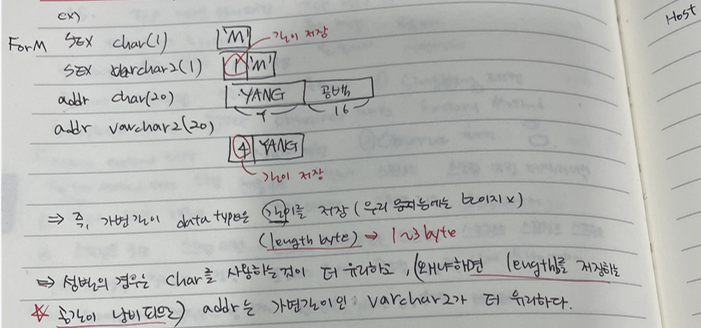 ex)
Host
ForM SEX char(1) 'M' 길이 저장
SEX varchar2(1) 1 'M'
addr char(20) YANG 공백
4 16
addr varchar2(20)
4 YANG
길이 저장
⇒ 즉, 가변길이 data type은 길이를 저장 (우리 눈에는 보이지 x)
(length byte) → 1~3 byte
⇒ 성별의 경우는 char를 사용하는것이 더 유리하고, (왜냐하면 length를 저장하는
☆ 공간이 낭비되므로) addr는 가변길이인 varchar2가 더 유리하다.